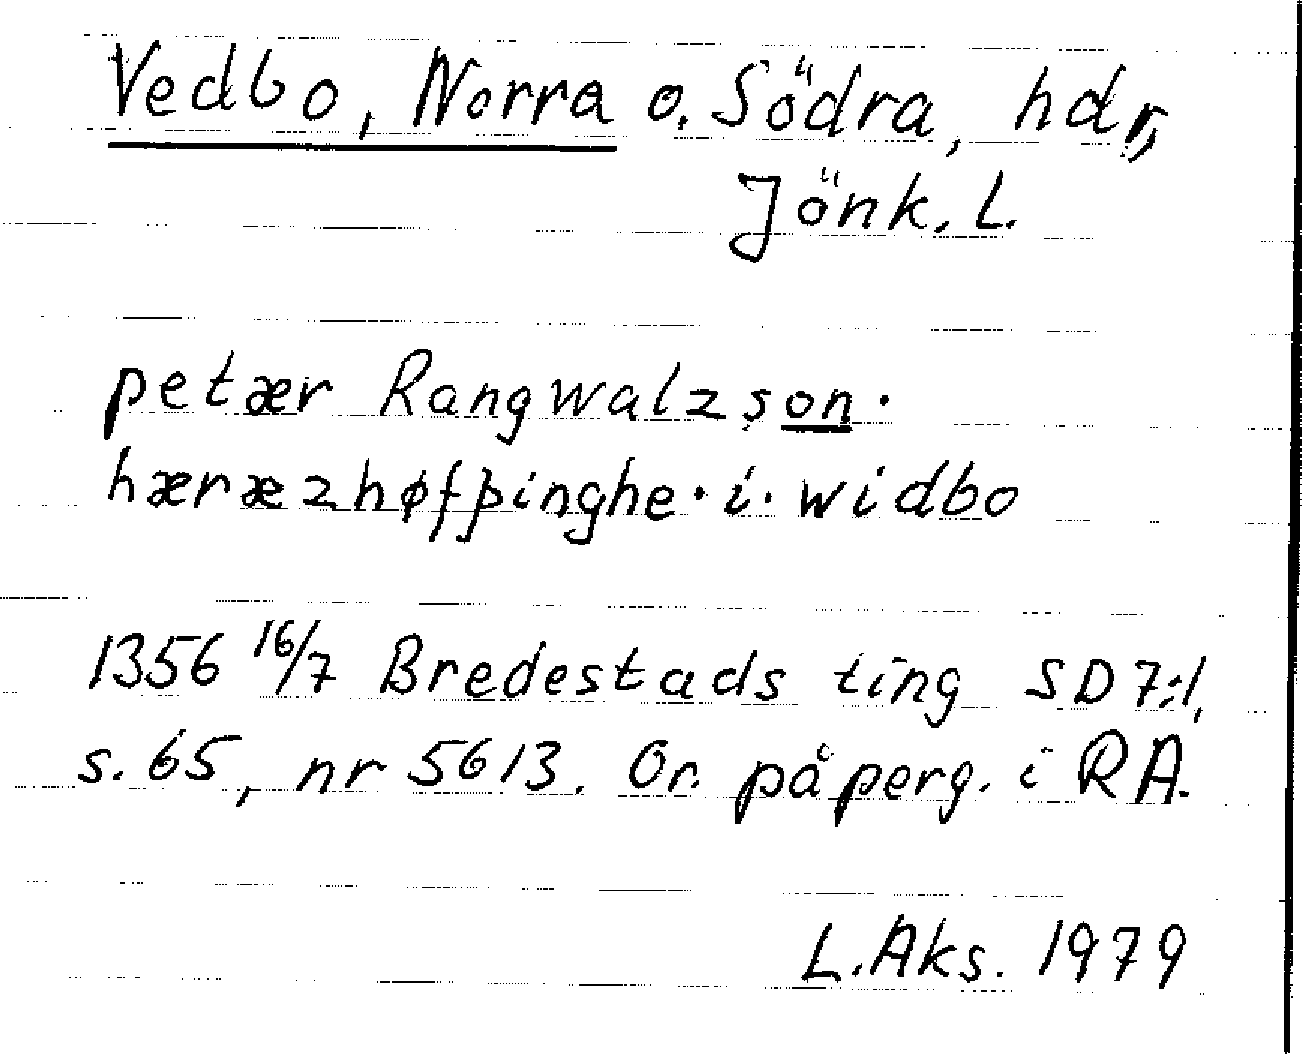 Vedbo, Norra o. Södra, hdr,
Jönk. L.
petær Rangwalzson·
hæræzhøfþinghe·i·widbo
1356 16/7 Bredestads ting SD 7:1,
s. 65, nr 5613. Or. på perg. i RA.
L.Aks. 1979